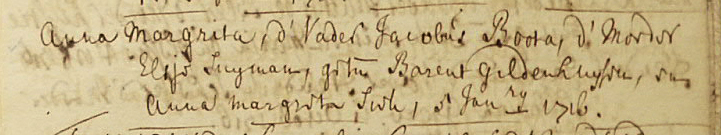 Anna Margrita, d' Vader Jacobus Boota, d' Moeder
Elsje Sugman, getn̄ Barent Gildenhuysen, en
Anna Margrita Siek, 5 Janry 1716.